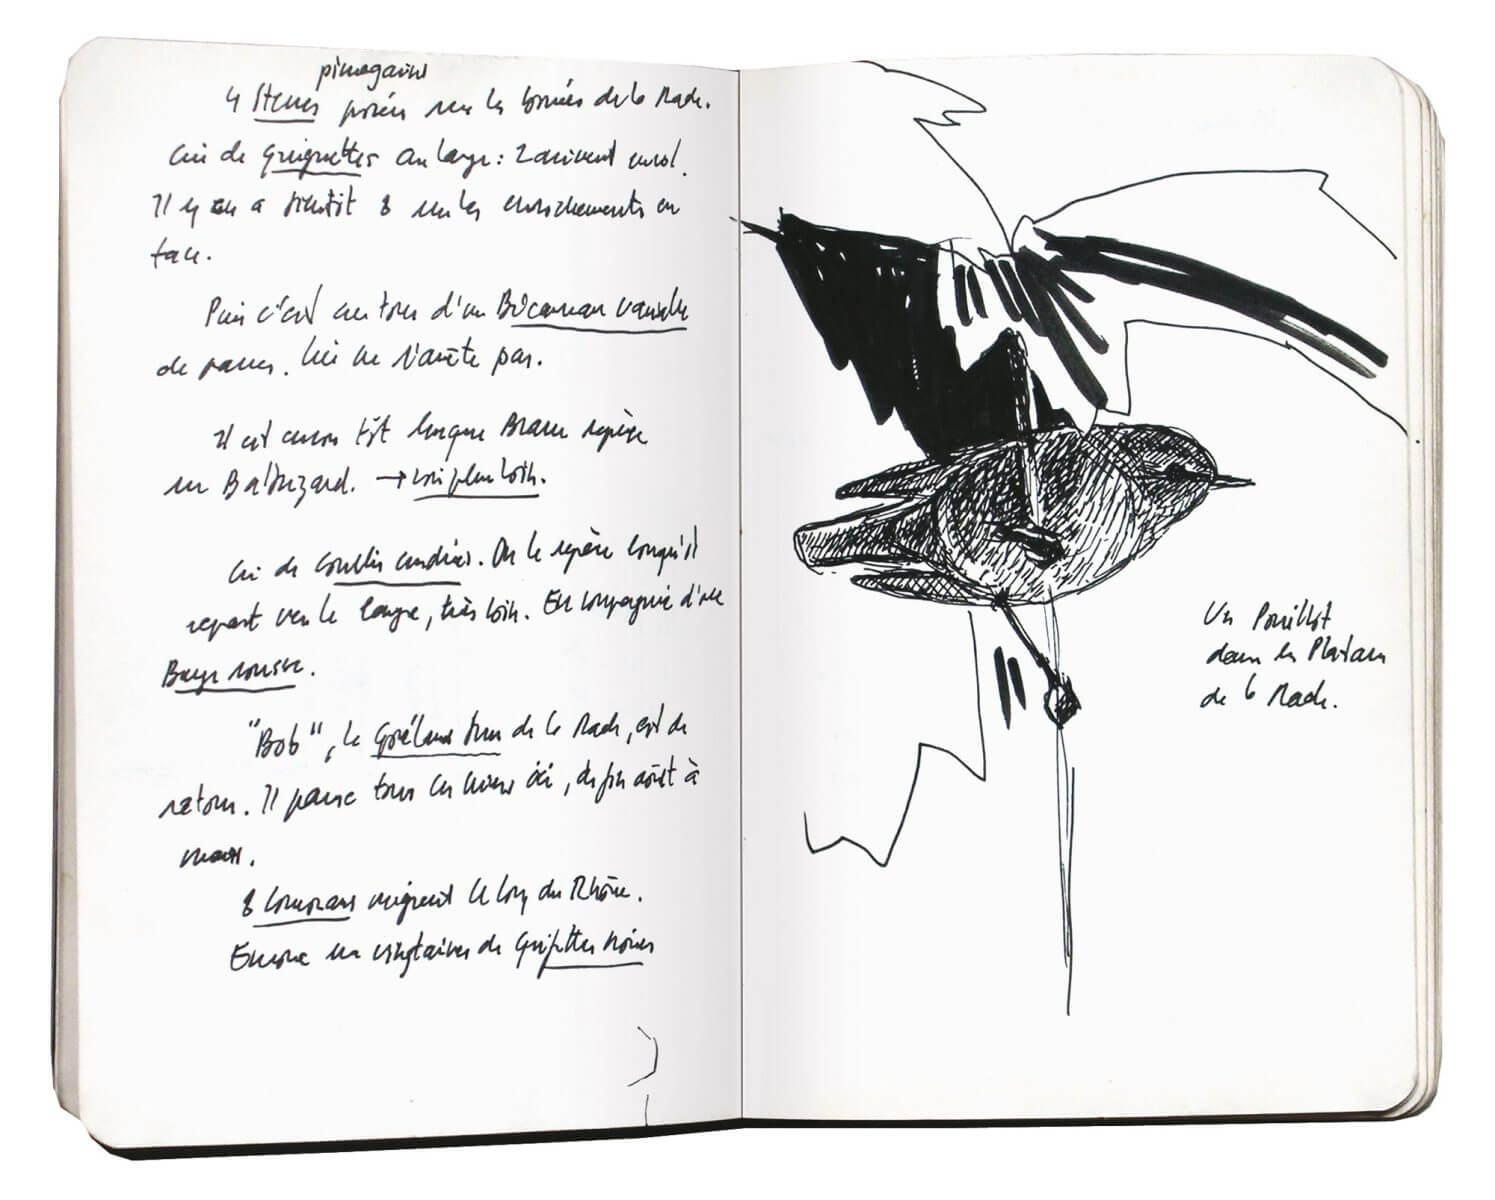 pierregarins
4 Sternes posées sur les bouées de la Rade.
Cri de guignettes au large : 2 arrivent en vol.
Il y en a bientôt 8 sur les enrochements en
face.
Puis c'est au tour d'un Bécasseau variable
de passer. Lui ne s'arrête pas.
Il est encore tôt lorsque repère
un Balbuzard. → voir plus loin.
Cri de Courlis cendrés. On le repère lorsqu'il
repart vers le large, très loin. En compagnie d'une
Barge rousse.
"Bob", le Goéland brun de la Rade, est de
retour. Il passe tous les hivers ici, de fin août à
mars.
8 Cormorans migrent le long du Rhône.
Encore une vingtaines de Guifettes noires
Un Pouillot
dans les Platanes
de la Rade.